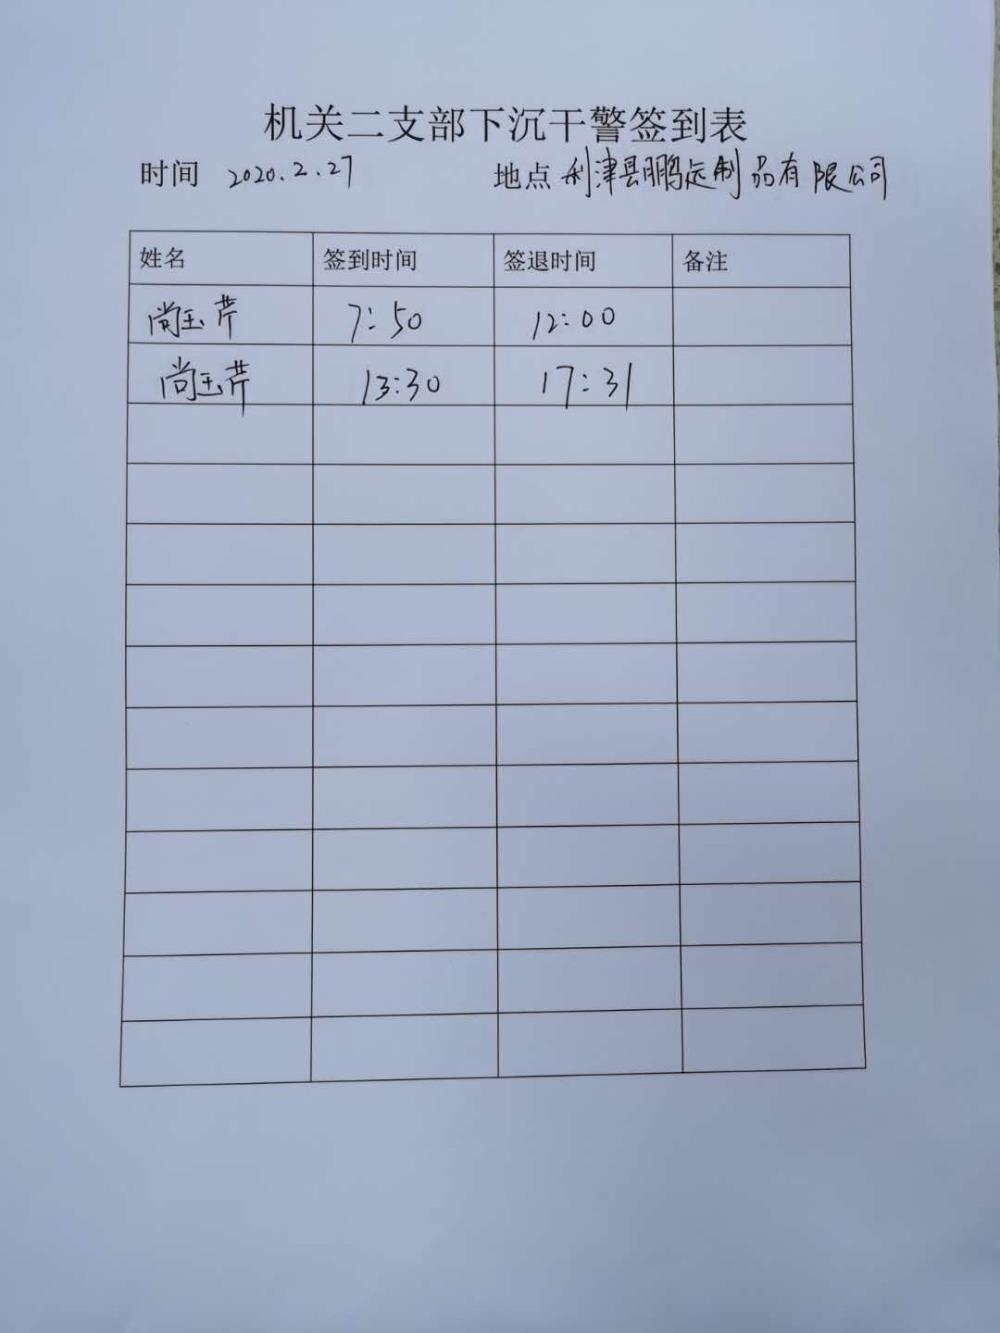 机关二支部下沉干警签到表
时间 2020.2.27 地点 利津县鹏运制品有限公司
姓名 签到时间 签退时间 备注
尚玉芹 7:50 12:00
尚玉芹 13:30 17:31